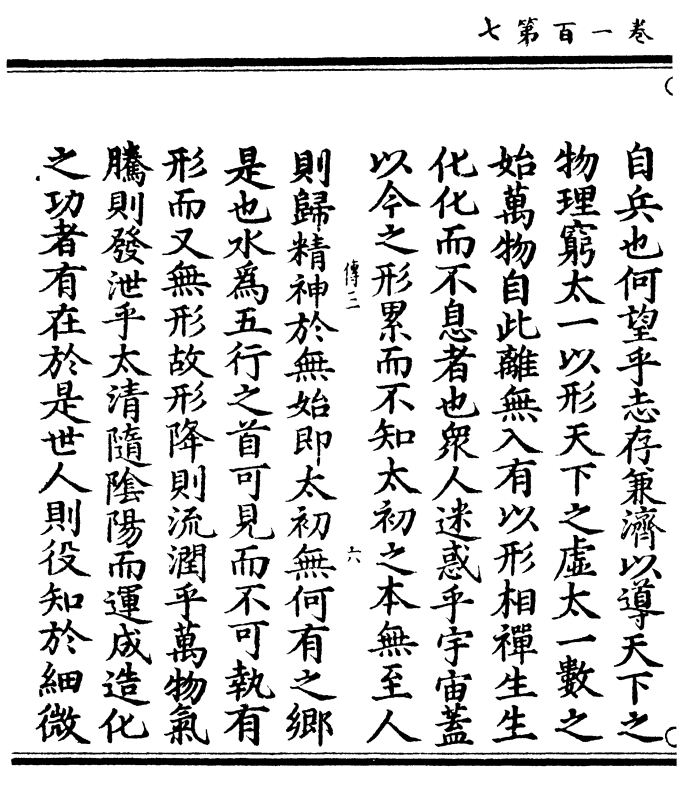 卷一百第七
自兵也何望乎志存兼濟以導天下之
物理窮太一以形天下之虛太一數之
始萬物自此離無入有以形相禪生生
化化而不息者也衆人迷惑乎宇宙蓋
以今之形累而不知太初之本無至人
傳三
六
則歸精神於無始即太初無何有之鄉
是也水爲五行之首可見而不可執有
形而又無形故形降則流潤乎萬物氣
騰則發泄乎太清隨陰陽而運成造化
之功者有在於是世人則役知於細微